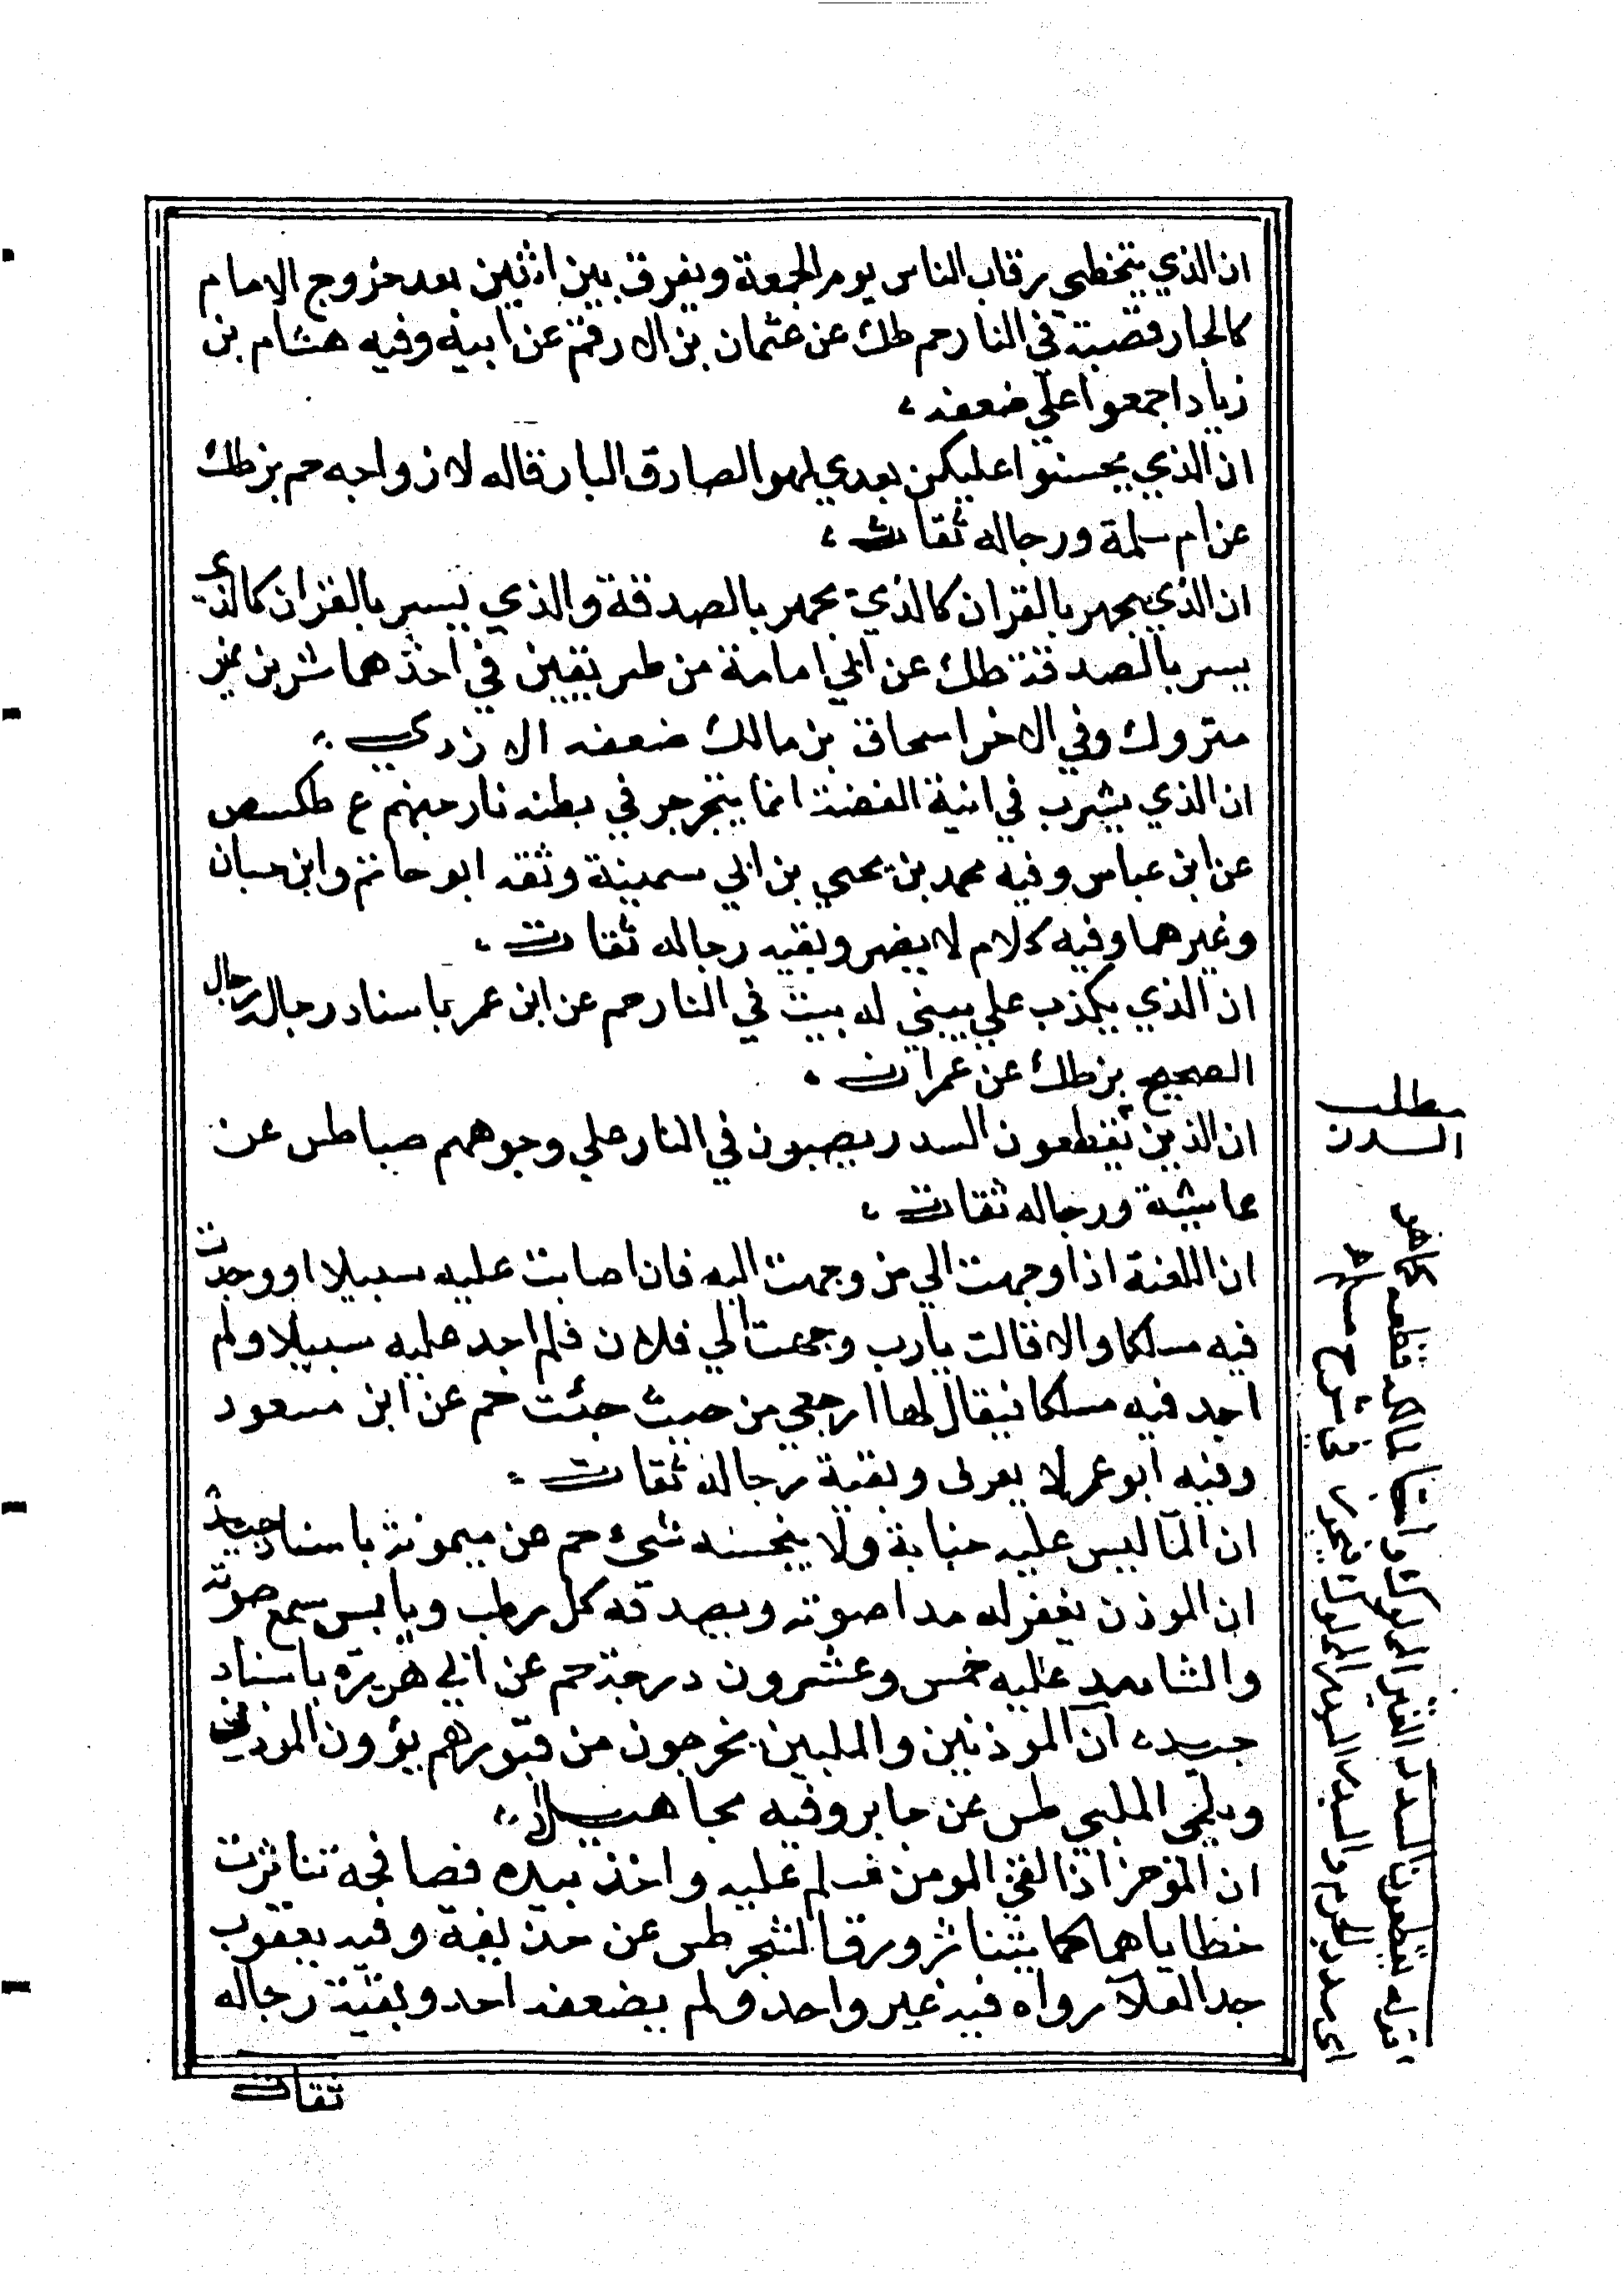 ان الذي يتخطى رقاب الناس يوم الجمعة ويفرق بين اثنين بعد خروج الامام
كالجار قصبته في النار حم طك عن عثمان بن الارقم عن ابيه وفيه هشام بن
زياد اجمعوا علي ضعفه ،
ان الذي يحسنوا عليكن بعدي لهو الصادق البار قاله لازواجه حم بز طك
عن ام سلمة ورجاله ثقات ،
ان الذي يجهر بالقران كالذي يجهر بالصدقة والذي يسر بالقران كالذي
يسر بالصدقة طك عن ابي امامة من طريقين في احدهما بشر بن نمير
متروك وفي الاخر اسحاق بن مالك ضعفه الازدي ،
ان الذي يشرب في انية الفضة انما يتجرجر في بطنه نار جهنم ع طكسص
عن ابن عباس وفيه محمد بن يحيي بن ابي سمينة وثقه ابو حاتم وابن حبان
وغيرهما وفيه كلام لا يضر وبقيه رجاله ثقات ،
ان الذي يكذب علي يبني له بيت في النار حم عن ابن عمر باسناد رجاله رجال
الصحيح بز طك عن عمران ،
ان الذين يقطعون السدر يصبون في النار علي وجوههم صبا طس عن
عايشة ورجاله ثقات ،
ان اللعنة اذا وجهت الي من وجهت اليه فان اصابت عليه سبيلا او وجدت
فيه مسلكا والا قالت يارب وجهت الي فلان فلم اجد عليه سبيلا ولم
اجد فيه مسلكا فيقال لها ارجعي من حيث جئت حم عن ابن مسعود
وفيه ابو عمر لا يعرف وبقية رجاله ثقات ،
ان الما ليس عليه جنابة ولا ينجسه شيء حم عن ميمونة باسناد جيد
ان الموذن يغفر له مدا صوته ويصدقه كل رطب ويابس سمع صوته
والشاهد عليه خمس وعشرون درجة حم عن ابي هريره باسناد
جيد ، ان الموذنين والملبين يخرجون من قبورهم يؤذن الموذن
ويلبي الملبي طس عن جابر وفيه مجاهيل ،
ان المومن اذا لقي المومن فسلم عليه واخذ بيده فصافحه تناثرت
خطاياهما كما يتناثر ورق الشجر طس عن حذيفة وفيه يعقوب
جد العلآ رواه فيه غير واحد ولم يضعفه احد وبقية رجاله
ثقات
مطلب
السدر
قوله يقطعون السدر